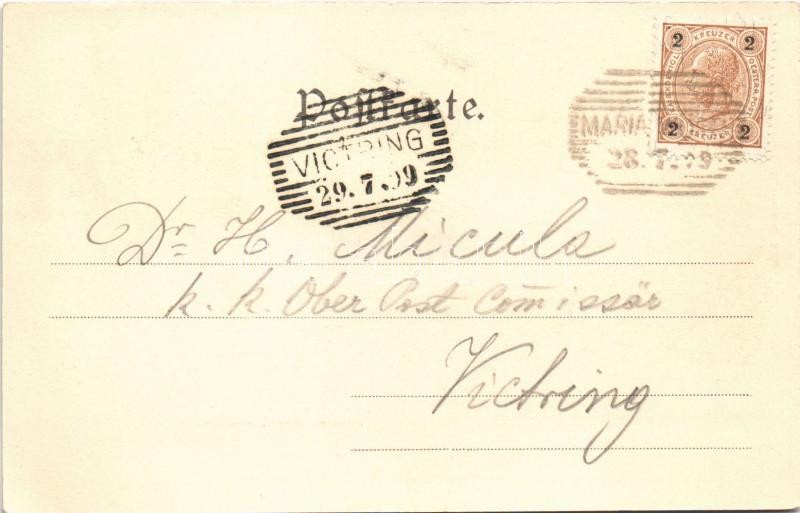 Postkarte.
2 KREUZER 2
2 KREUZER 2
MARIA
28. 7. 99
VICTRING
29. 7. 99
Dr. H. Micula
k. k. Ober Post Comissär
Victring